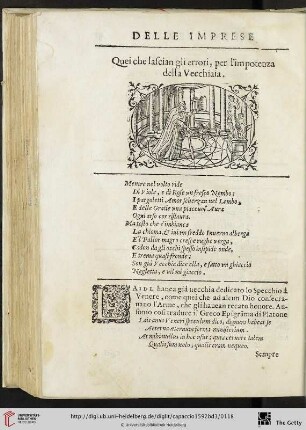 DELLE IMPRESE
Quei che lascian gli errori, per l'impotenza
della Vecchiaia.
Mentre nel volto ride
Di Viole, e di Rose un fresco Nembo;
I pargoletti Amor scherzan nel Lembo;
E delle Gratie una piaceuol' Aura
Ogni arso cor ristaura.
Ma tosto che s'imbianca
La chioma, & iui un freddo Inuerno alberga
Et Pallor magro crespe rughe verga,
E odon da gli occhi spessi
E trema quasi fronde;
Son già Vecchia dice ella, e fatto un ghiaccio
Negletta, e uil mi giaccio.
LAIDE hauea già uecchia dedicato lo Specchio à
Venere, come quei che ad alcun Dio consecra-
uano l'Arme, che gli haueano recato honore. Au-
sonio così tradusse il Greco Epigrama di Platone
Lais anus Veneri speculum dico, dignum habeat se
Aeterna aeternum forma ministerium.
At mihi nullus in hoc usus, quia cernere talem
Qualis sum nolo, qualis eram nequeo.
Sempre
http://digi.ub.uni-heidelberg.de/diglit/capaccio1592bd3/0118
© Universitätsbibliothek Heidelberg